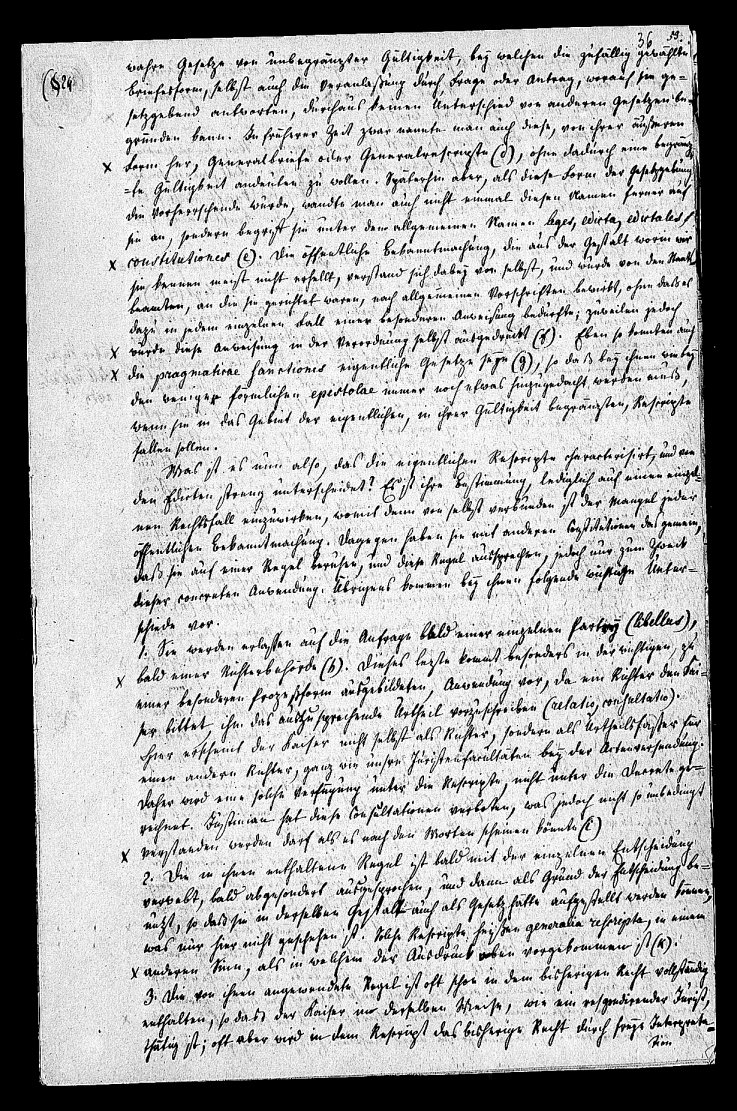 36 53.
(§24
wahre Gesetze von unbegränzter Gültigkeit, bey welchen die zufällig gewählte
Briefesform, selbst auch die Veranlaßung durch Frage oder Antrag, worauf sie ge-
setzgebend antworten, durchaus keinen Unterschied von anderen Gesetzen be-
gründen kann. In früherer Zeit zwar nannte man auch diese, von ihrer äußeren
Form her, Generalbriefe oder Generalrescripte (d), ohne dadurch eine begränz-
=te Gültigkeit andeuten zu wollen. Späterhin aber, als diese Form der Gesetzgebung
die vorherrschende wurde, wandte man auch nicht einmal diesen Namen ferner auf
sie an, sondern begriff sie unter dem allgemeinen Namen leges, edicta, edictales
constitutiones (e). Die öffentliche Bekanntmachung, die aus der Gestalt worin wir
sie kennen meist nicht erhellt, verstand sich dabey von selbst, und wurde von den Staats
beamten, an die sie gerichtet waren, nach allgemeinen Vorschriften bewirkt, ohne daß es
dazu in jedem einzelnen Fall einer besonderen Anweisung bedürfte; zuweilen jedoch
wurde diese Anweisung in der Verordnung selbst ausgedrückt (f). Eben so konnten auch
die pragmaticae sanctiones eigentliche Gesetze seyn (g), so daß bey ihnen wie bey
den weniger förmlichen epistolae immer noch etwas hinzugedacht werden muß,
wenn sie in das Gebiet der eigentlichen, in ihrer Gültigkeit begränzten, Rescripte
fallen sollen.
Was ist es nun also, das die eigentlichen Rescripte characterisirt, und von
den Edicten streng unterscheidet? Es ist ihre Bestimmung, lediglich auf einen einzel-
nen Rechtsfall einzuwirken, womit denn von selbst verbunden ist der Mangel jeder
öffentlichen Bekanntmachung. Dagegen haben sie mit anderen Constitutionen das gemein,
daß sie auf einer Regel beruhen, und diese Regel aussprechen, jedoch nur zum Zweck
dieser concreten Anwendung. Übrigens kommen bey ihnen folgende wichtige Unter-
schiede vor.
1. Sie werden erlassen auf die Anfrage bald einer einzelnen Partey (libellus),
bald einer Richterbehörde (h). Dieses lezte kommt besonders in der wichtigen, zu
einer besonderen Prozeßform ausgebildeten, Anwendung vor, da ein Richter den Kai-
ser bittet, ihm das auszusprechende Urtheil vorzuschreiben (relatio, consultatio).
Hier erscheint der Kaiser nicht selbst als Richter, sondern als Urtheilsfasser für
einen andern Richter, ganz wie unsre Juristenfacultäten bey der Actenversendung.
Daher wird eine solche Verfügung unter die Rescripte, nicht unter die Decrete ge-
rechnet. Justinian hat diese Consultationen verboten, was jedoch nicht so unbedingt
verstanden werden darf als es nach den Worten scheinen könnte (i)
2. Die in ihnen enthaltene Regel ist bald mit der einzelnen Entscheidung
verwebt, bald abgesondert ausgesprochen, und dann als Grund der Entscheidung be-
nuzt, so daß sie in derselben Gestalt auch als Gesetz hätte aufgestellt werden können,
was nur hier nicht geschehen ist. Solche Rescripte heißen generalia rescripta, in einem
anderen Sinn, als in welchem der Ausdruck oben vorgekommen ist (k).
3. Die von ihnen angewendete Regel ist oft schon in dem bisherigen Recht vollständig
enthalten, so daß der Kaiser in derselben Weise, wie ein respondirender Jurist,
thätig ist; oft aber wird in dem Rescript das bisherige Recht durch freye Interpreta-
tion